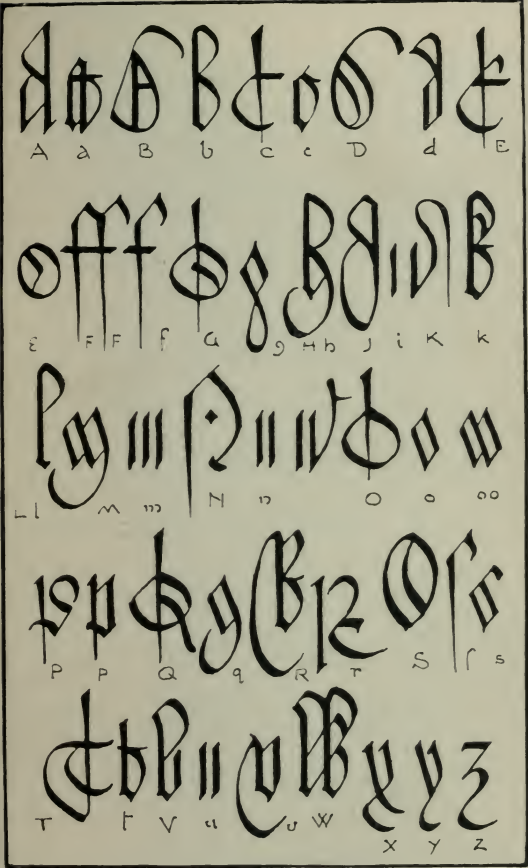 A a B b C c D d E
E F F f G g H h J i K k
L l M m N n O o oo
P p Q q R r S ſ s
T t V u v W x y z